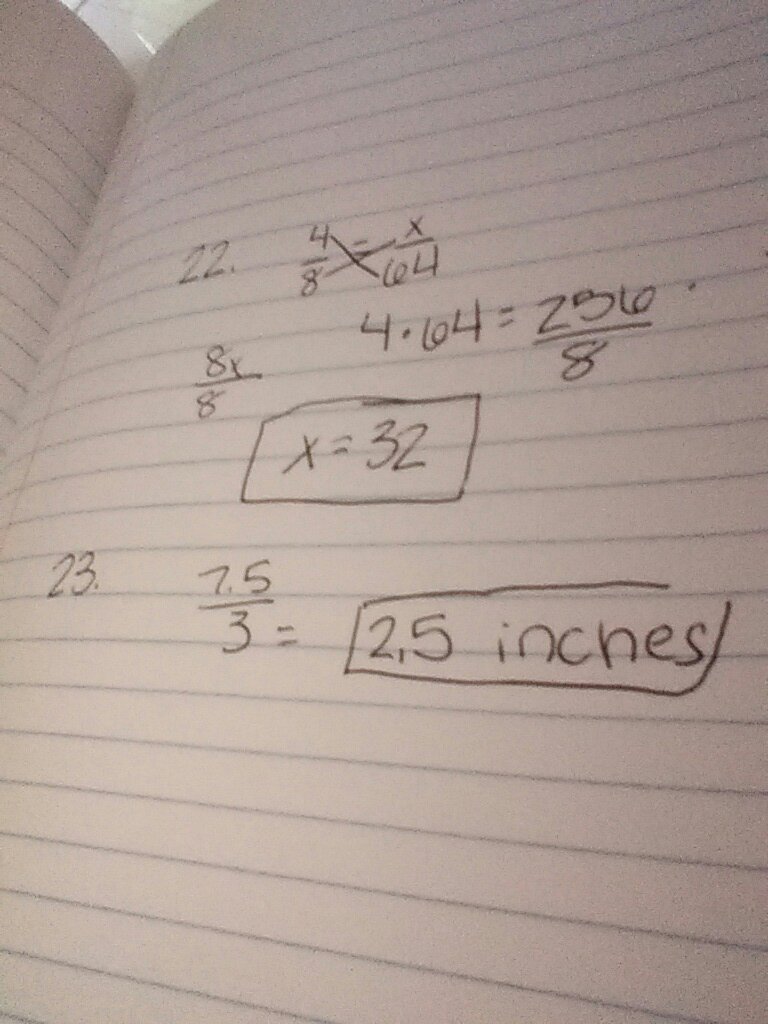 22. 4/8 = x/64
4·64 = 256/8
8x/8
x = 32
23. 7.5/3 = 2.5 inches